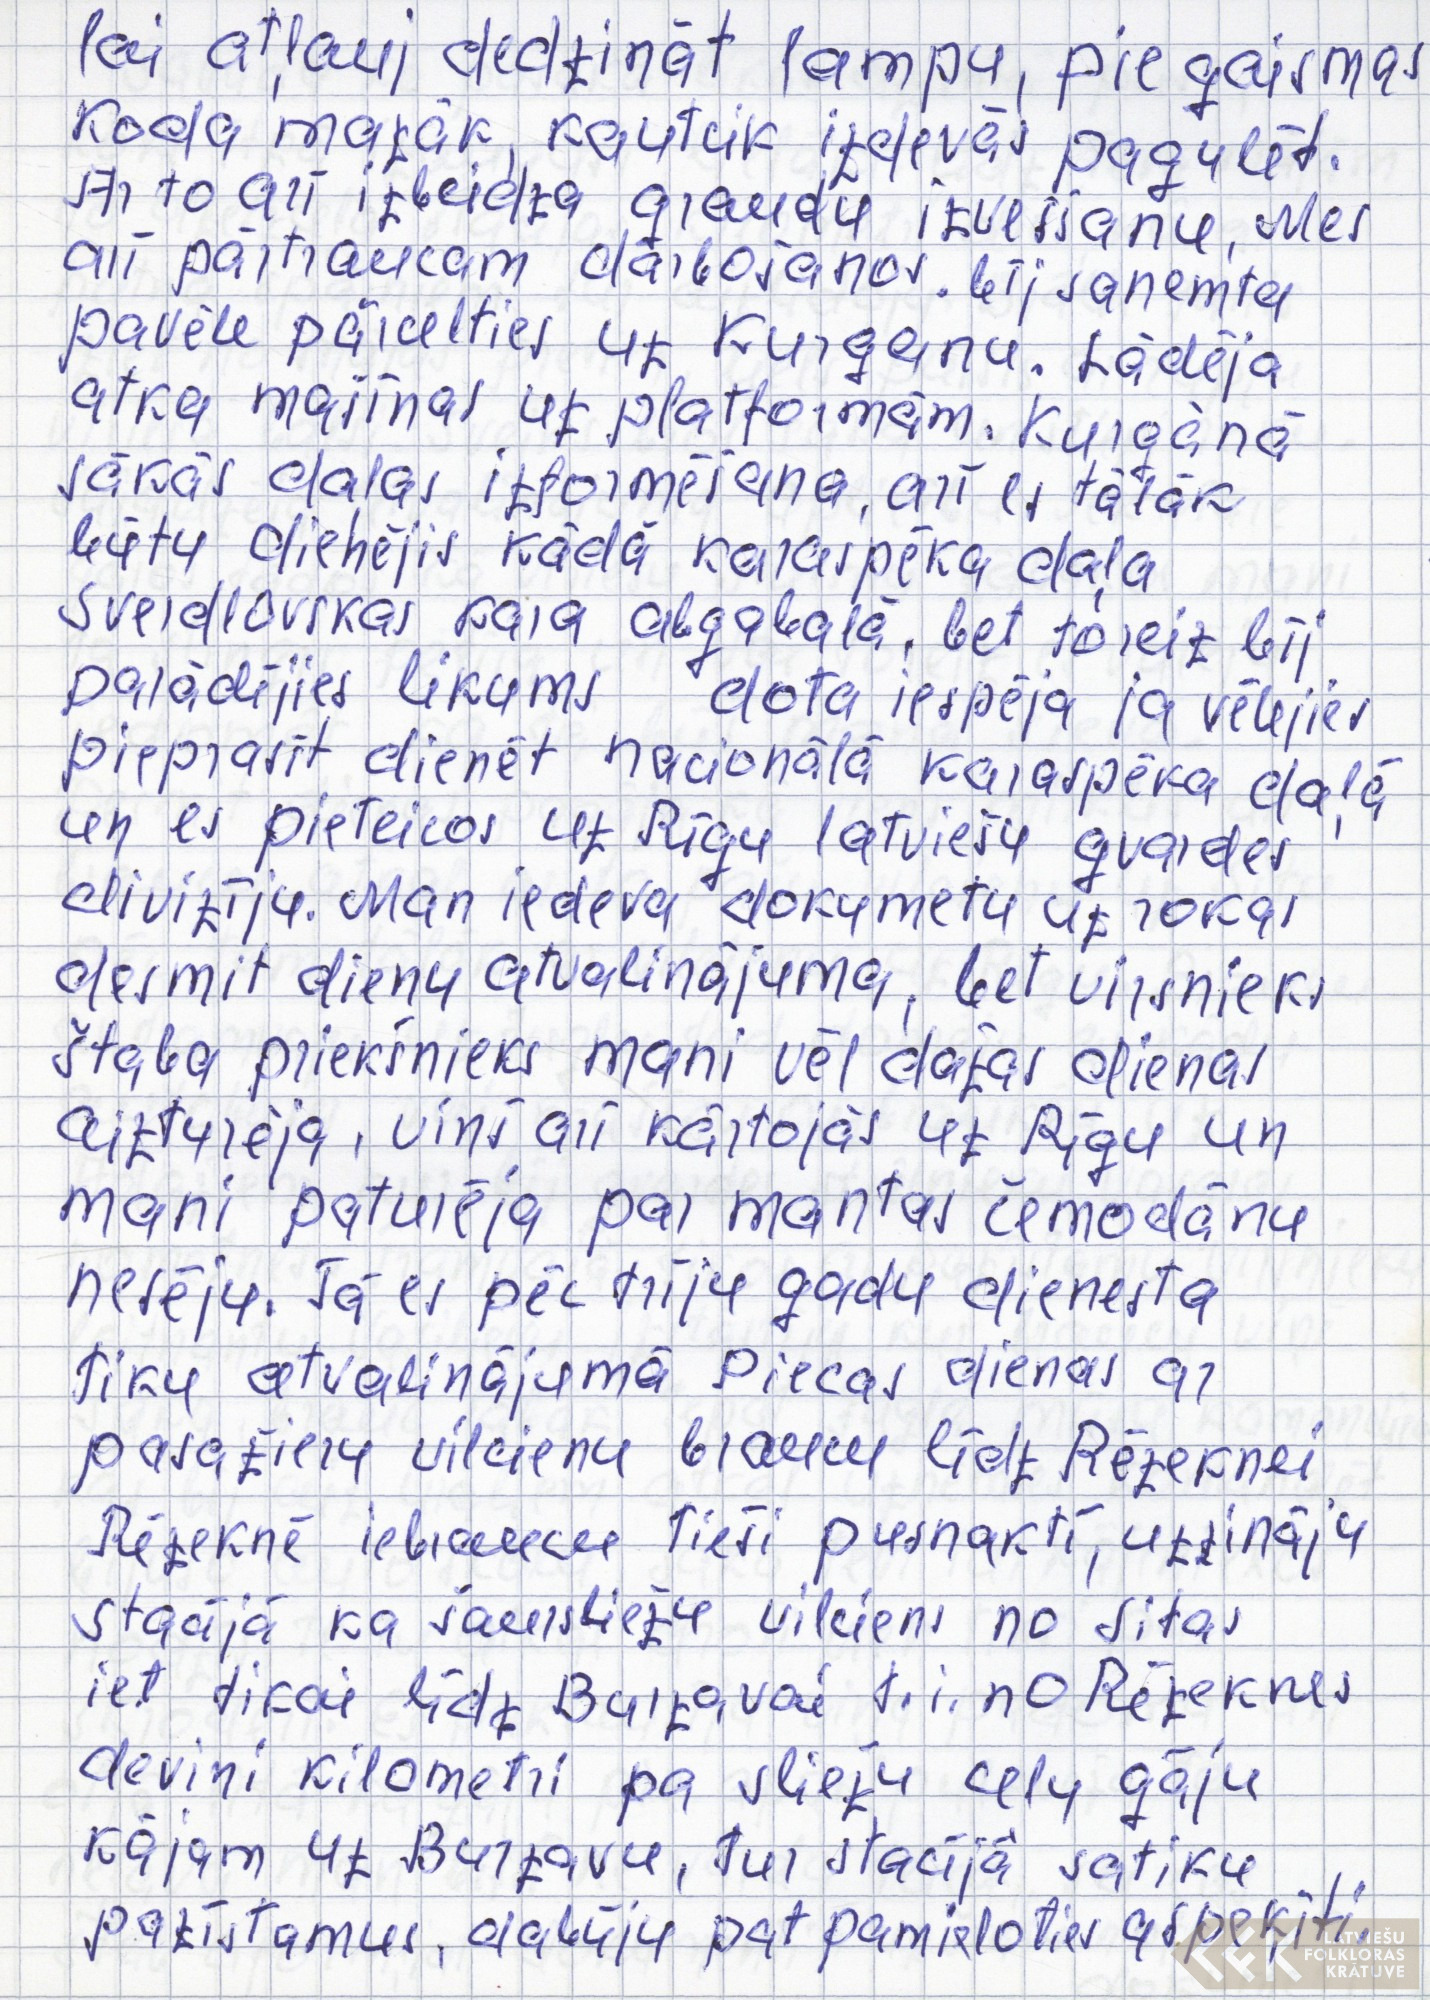 lai atļauj dedzināt lampu, pie gaismas
koda mazāk, kautcik izdevās pagulēt.
Ar to arī izbeidza graudu izvešsanu, Mes
arī pārtraucam dārbošanos. bij sanemta
pavēle pārcelties uz Kurganu. Lādēja
atka mašīnas uz platformām. Kurgānā
sākās daļas izformēšana, arī es tālāk
būtu dienējis kādā karaspēka daļa
Sverdlovskas kara abgabalā, bet toreiz bij
parādījies likums dota iespēja ja vēlējies
pieprasīt dienēt nacionālā karaspēka daļā
un es pieteicos uz Rīgu latviešu gvardes
divizīju. Man iedeva dokumetu uz rokas
desmit dienu atvalinājuma, bet virsnieks
štaba priekšnieks mani vēl dažas dienas
aizturēja, vinš arī kārtojās uz Rīgu un
mani paturēja par mantas čemodānu
nesēju. Tā es pēc trīju gadu dienesta
tiku atvalinājumā Piecas dienas ar
pasažieru vilcienu braucu līdz Rēzeknei
Rēzeknē iebraucu tieši pusnaktī, uzzināju
stacijā ka šaursliežu vilciens no Sitas
iet tikai līdz Burzavai t.i. no Rēzeknes
devini kilometri pa sliežu celu gāju
kājam uz Burzavu, tur stacījā satiku
pazīstamus, dabūju pat pamieloties aspeķīti.
LATVIEŠU
FOLKLORAS
KRĀTUVE